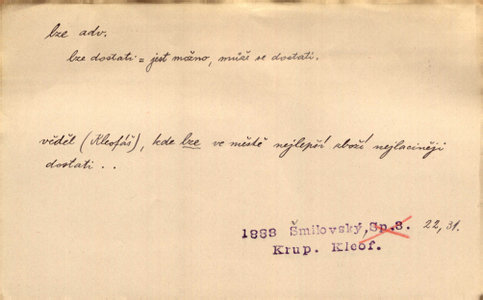 lze adv.
lze dostati = jest možno, může se dostati.
věděl (Kleofáš), kde lze ve městě nejlepší zboží nejlaciněji
dostati . .
1888 Šmilovský, Sp.8. 22, 31.
Krup. Kleof.